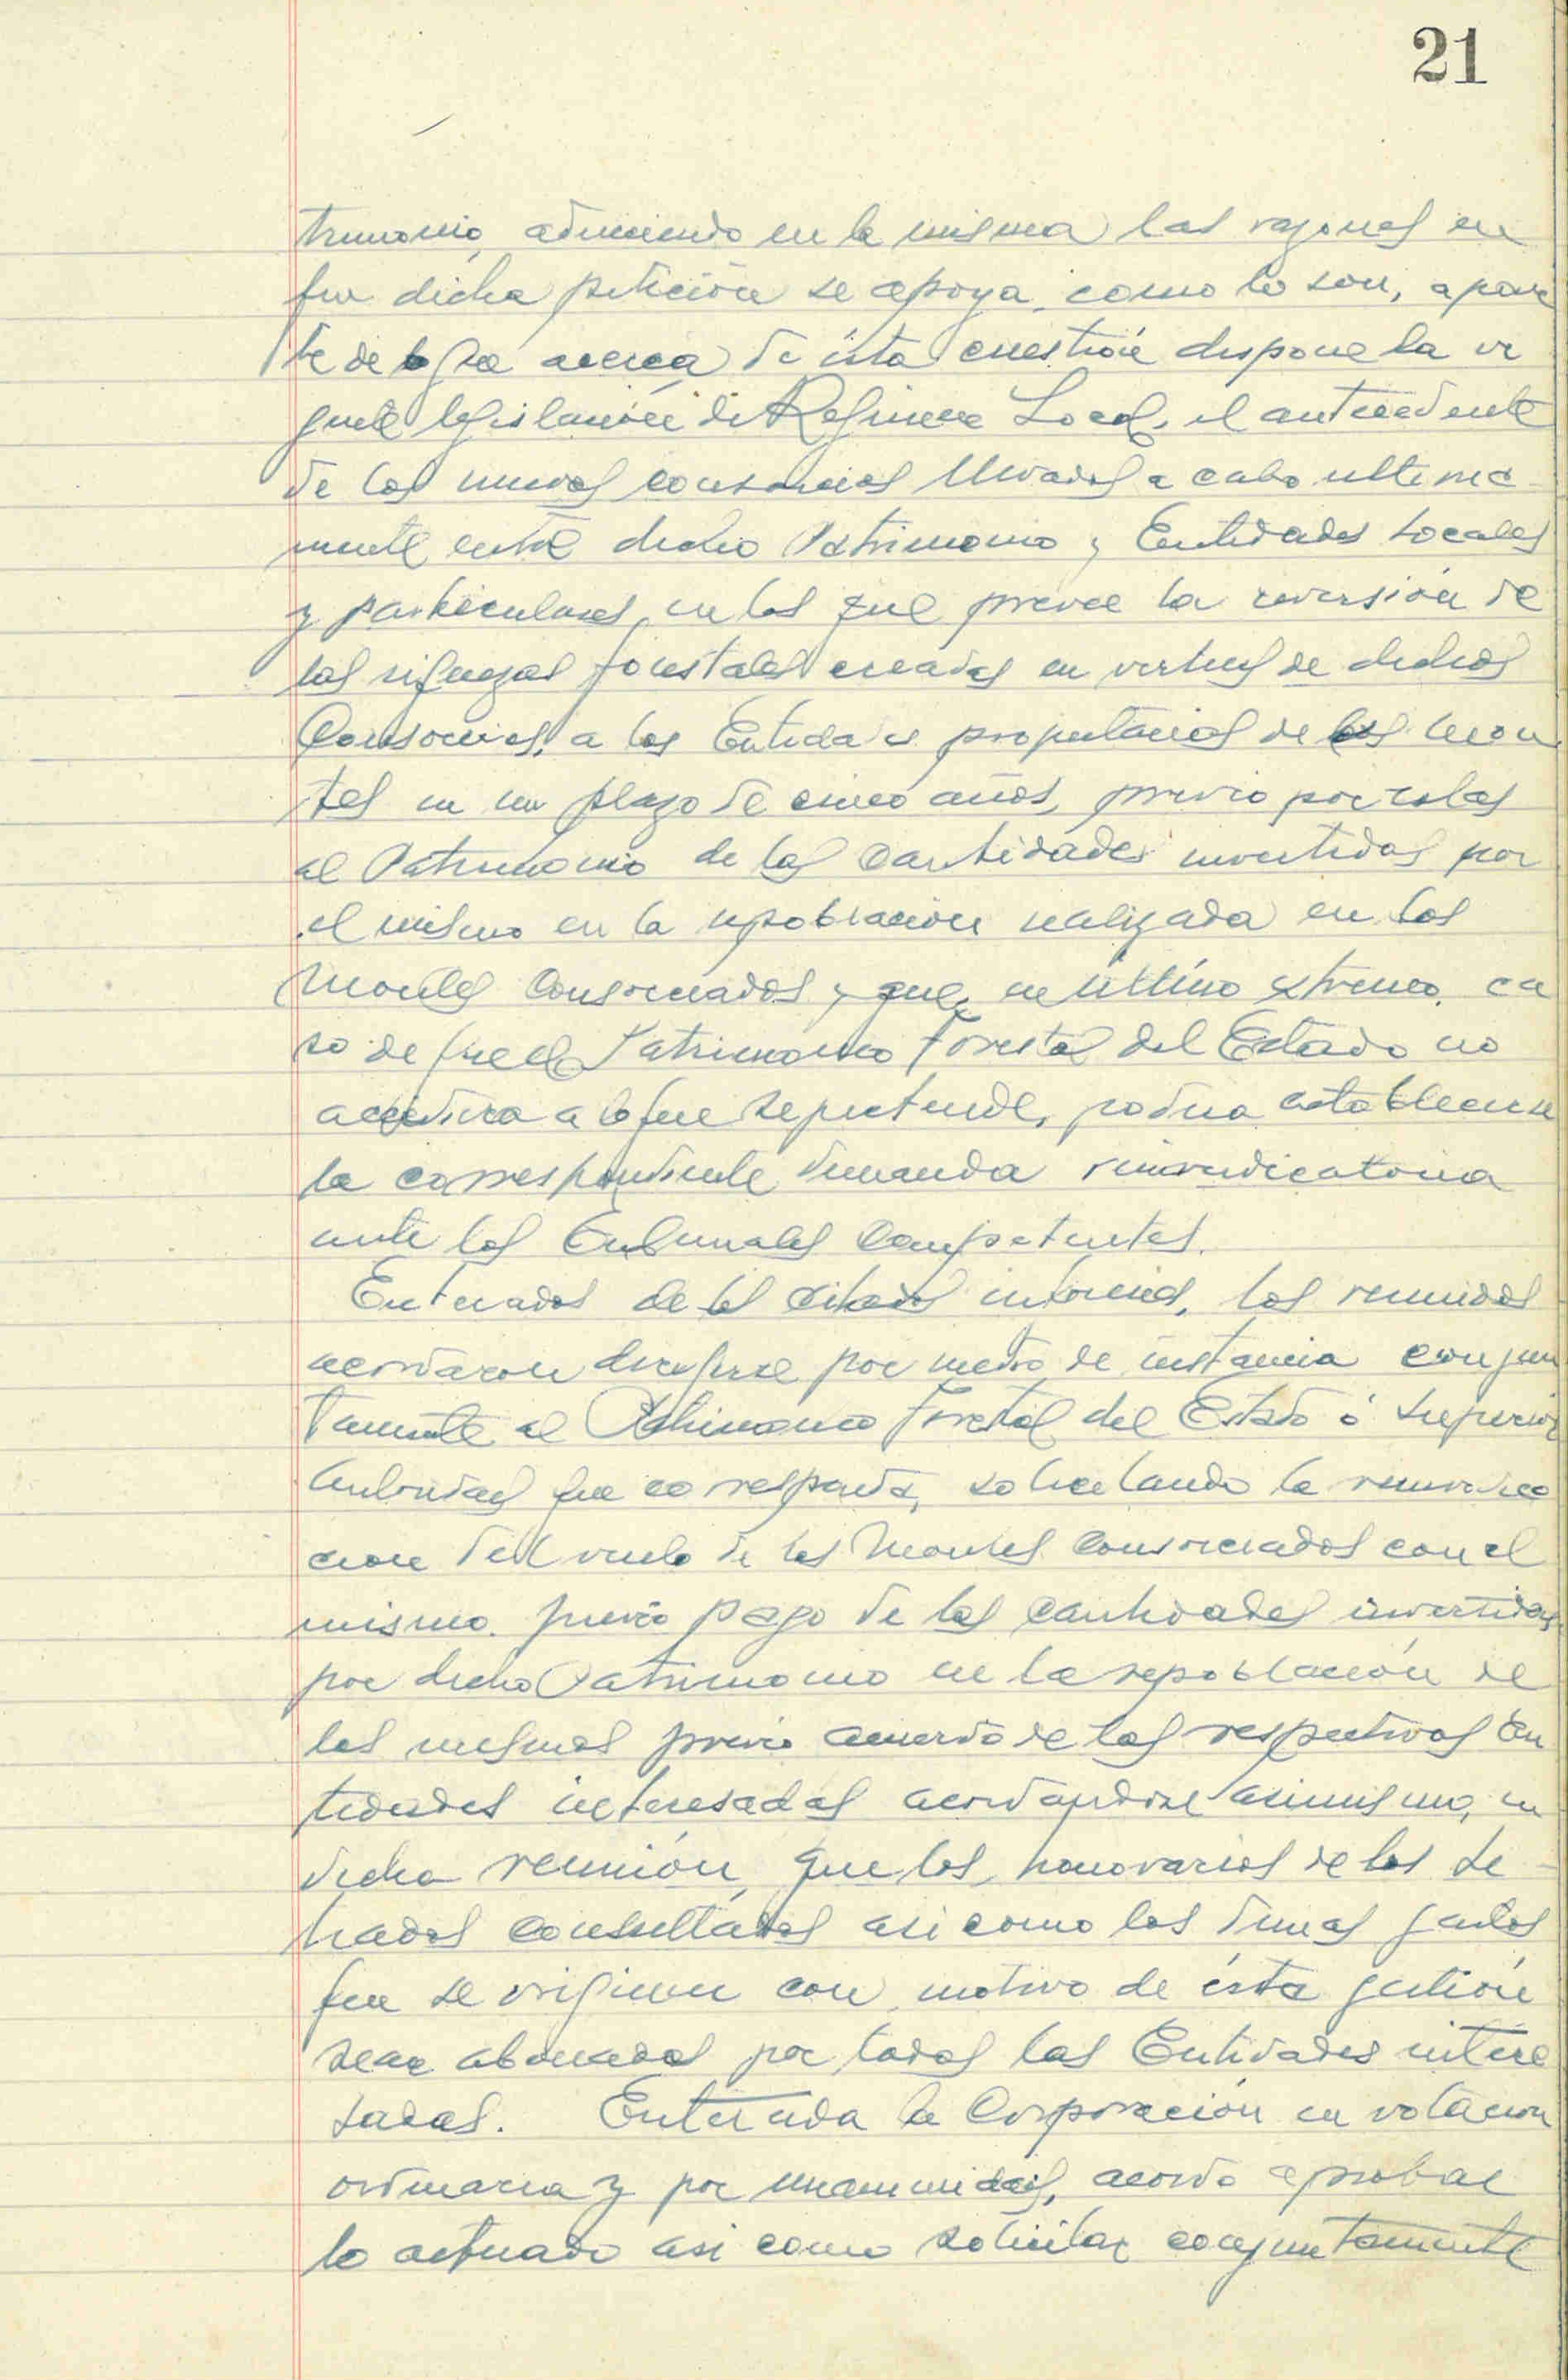 21
trimonio, aduciendo en la misma las razones en
que dicha petición se apoya, como lo son, apar
te de lo que acerca de ésta cuestión dispone la vi
gente legislación de Régimen Local, el antecedente
de los nuevos consorcios llevados a cabo ultima
mente entre dicho Patrimonio y Entidades Locales
y particulares, en los que prevee la reversión de
las riquezas forestales creadas en virtud de dichos
Consorcios, a las Entidades propietarias de los mon
tes en un plazo de cinco años, previo
al Patrimonio de las cantidades invertidas por
el mismo en la repoblación realizada en los
Montes Consorciados y que, en último extremo, ca
so de que el Patrimonio Forestal del Estado no
accediera a lo que se pretende, podria establecerse
la correspondiente demanda reivindicatoria
ante los Tribunales Competentes.
Enterados de los citados informes, los reunidos
acordaron dirigirse por medio de instancia conjun
tamente al Patrimonio Forestal del Estado ó Superior
Autoridad que corresponda, solicitando la reivindica
cion del vuelo de los Montes Consorciados con el
mismo. previo pago de las cantidades invertidas
por dicho Patrimonio en la repoblación de
los mismos previo acuerdo de las respectivas En
tidades interesadas acordandose asimismo, en
dicha reunión, que los honorarios de los Le
trados consultados asi como los demas gastos
que se originen con motivo de ésta gestión
sean abonados por todas las Entidades intere
sadas. Enterada la Corporación en votacion
ordinaria y por unanimidad, acordo aprobar
lo actuado asi como solicitar conjuntamente